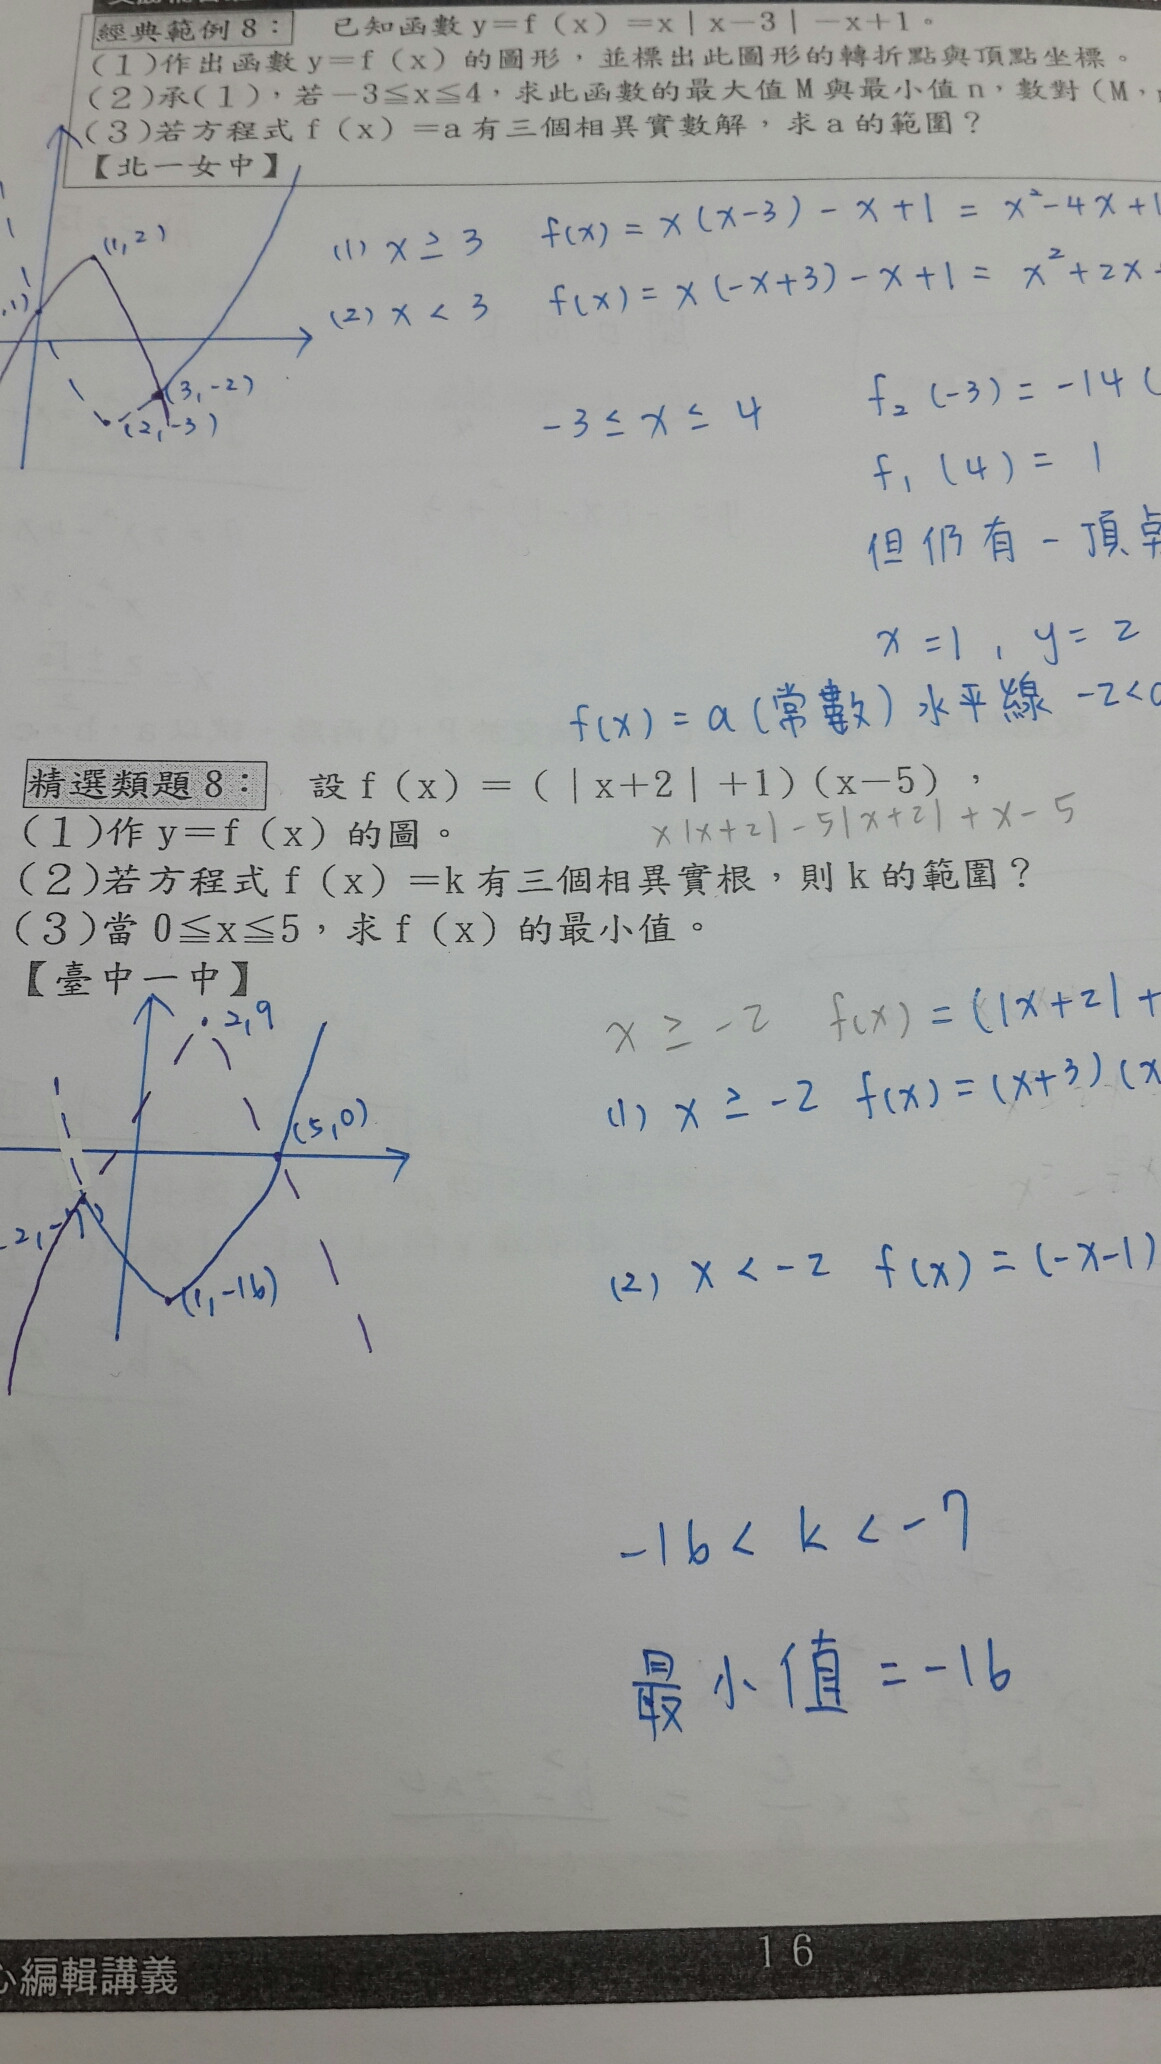 經典範例8： 已知函數y＝f（x）＝x｜x－3｜－x＋1。
(1)作出函數y＝f（x）的圖形，並標出此圖形的轉折點與頂點坐標。
(2)承(1)，若－3≦x≦4，求此函數的最大值M與最小值n，數對（M，
(3)若方程式f（x）＝a有三個相異實數解，求a的範圍？
【北一女中】
(1,2)
,1)
(3,-2)
(2,-3)
(1) x ≥ 3 f(x) = x(x-3) - x + 1 = x²-4x+1
(2) x < 3 f(x) = x(-x+3) - x + 1 = x²+2x
-3 ≤ x ≤ 4 f₂(-3) = -14 (
f₁(4) = 1
但仍有一頂
x=1, y=2
f(x) = a (常數) 水平線 -2<
精選類題8： 設f（x）＝（｜x＋2｜＋1）（x－5），
x|x+2| - 5|x+2| + x - 5
(1)作y＝f（x）的圖。
(2)若方程式f（x）＝k有三個相異實根，則k的範圍？
(3)當0≦x≦5，求f（x）的最小值。
【臺中一中】
2,9
(5,0)
2,-7)
(1,-16)
x ≥ -2 f(x) = (|x+2| +
(1) x ≥ -2 f(x) = (x+3)(x
(2) x < -2 f(x) = (-x-1)
-16 < k < -7
最小值 = -16
16
編輯講義